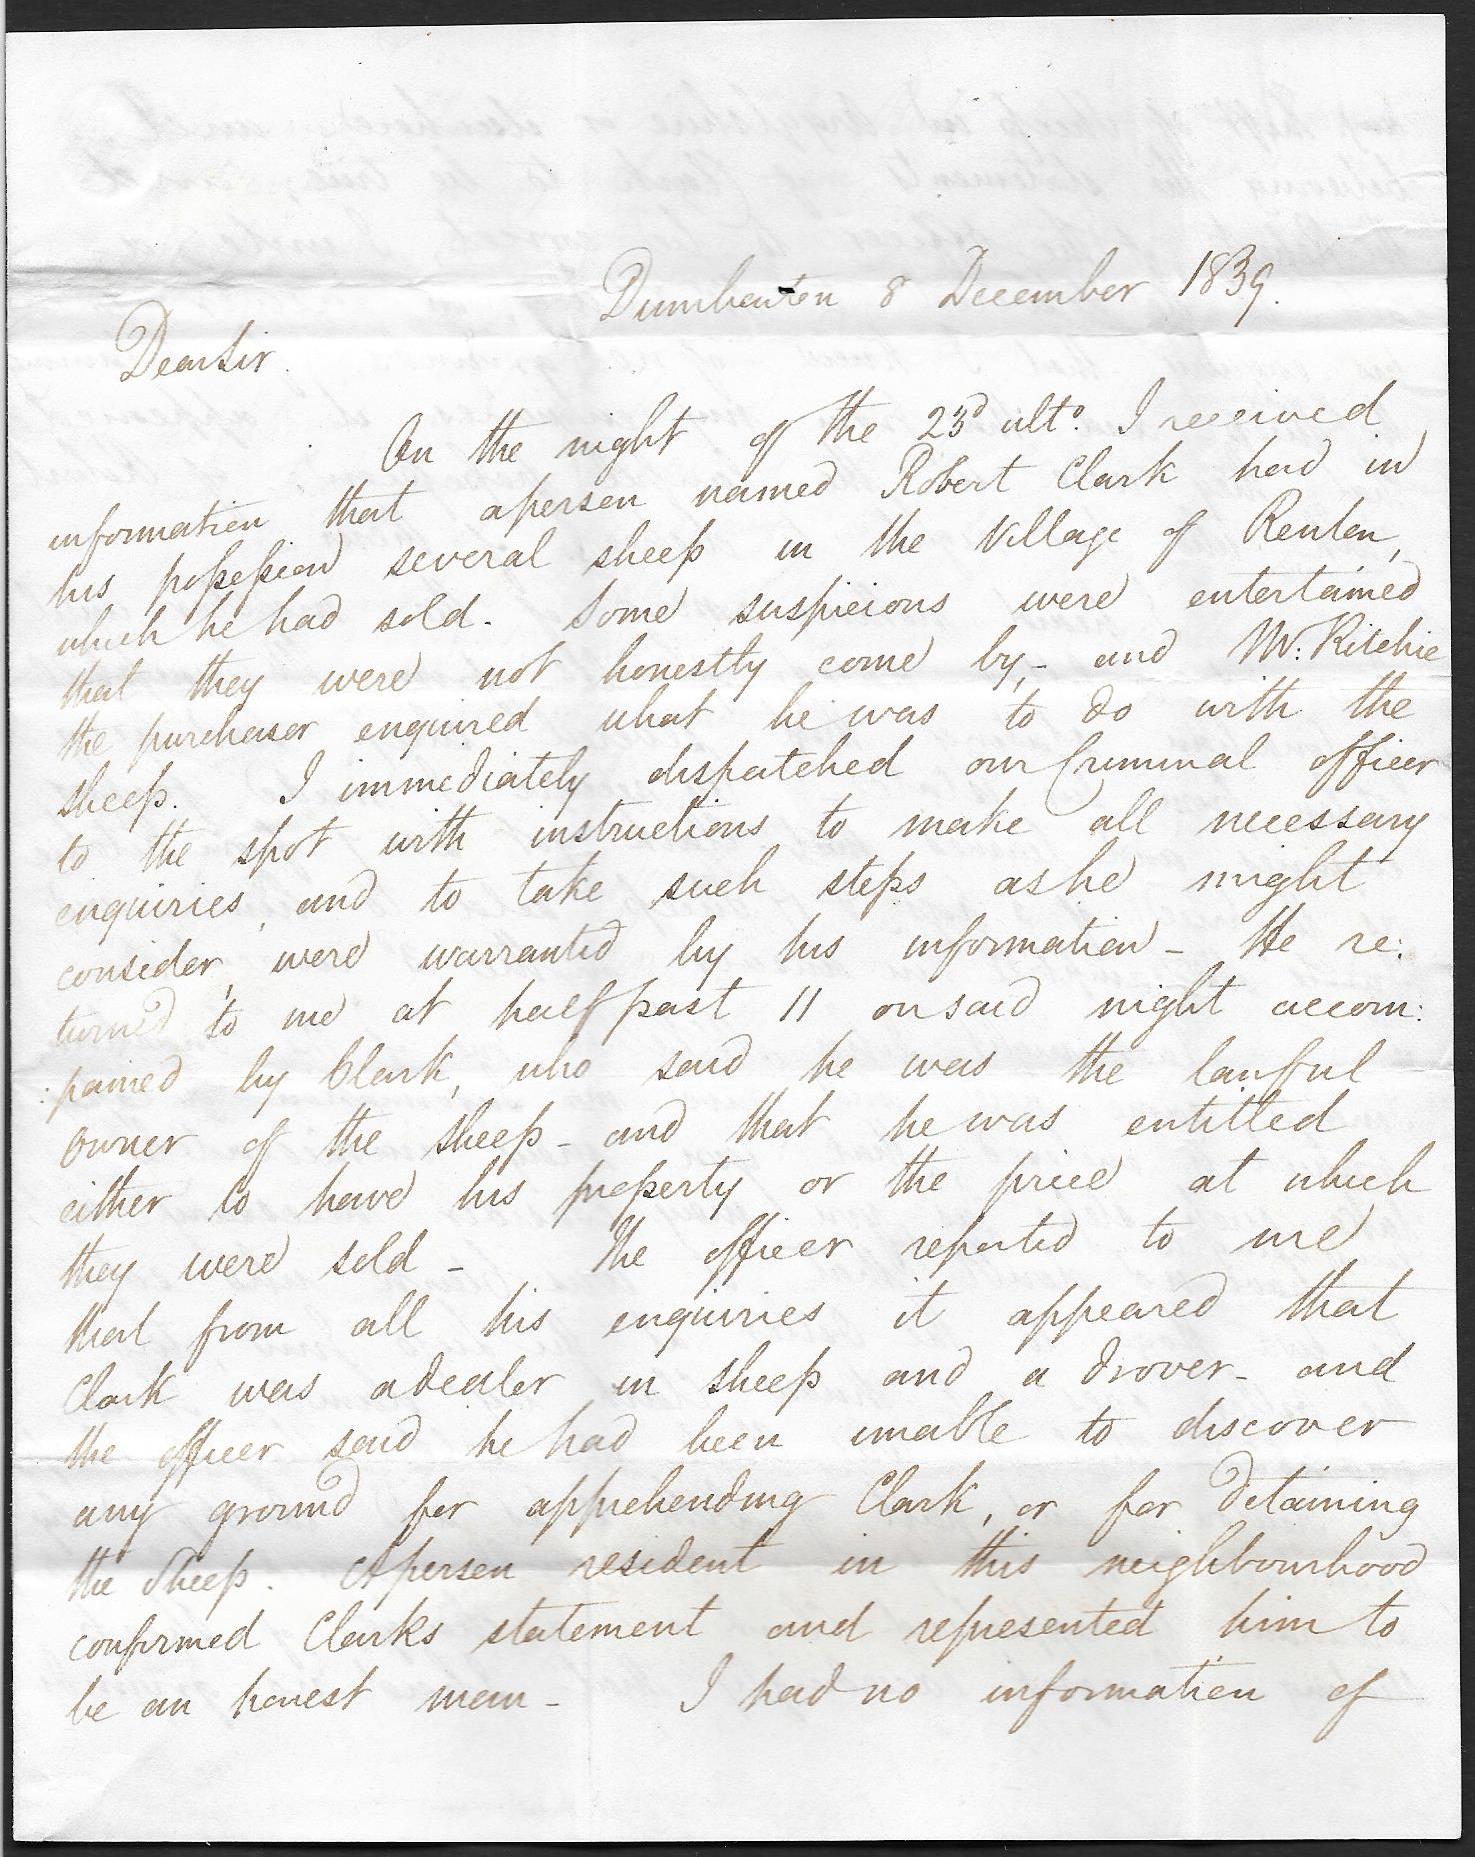 Dumbarton 8 December 1839.
Dear Sir.
On the night of the 23d ulto. I received
information that a person named Robert Clark had in
his possession several sheep in the Village of Renton,
which he had sold. Some suspicions were entertained
that they were not honestly come by, - and Mr. Ritchie
the purchaser enquired what he was to do with the
sheep. I immediately dispatched our Criminal officer
to the spot with instructions to make all necessary
enquiries, and to take such steps as he might
consider, were warranted by his information - He re:
turned to me at half past 11 on said night accom:
:panied by Clark, who said he was the lawful
owner of the sheep - and that he was entitled
either to have his property or the price at which
they were sold - The officer reported to me
that from all his enquiries it appeared that
Clark was a dealer in sheep and a drover - and
the officer said he had been unable to discover
any ground for apprehending Clark, or for detaining
the Sheep. A person resident in this neighbourhood
confirmed Clarks statement and represented him to
be an honest man - I had no information of